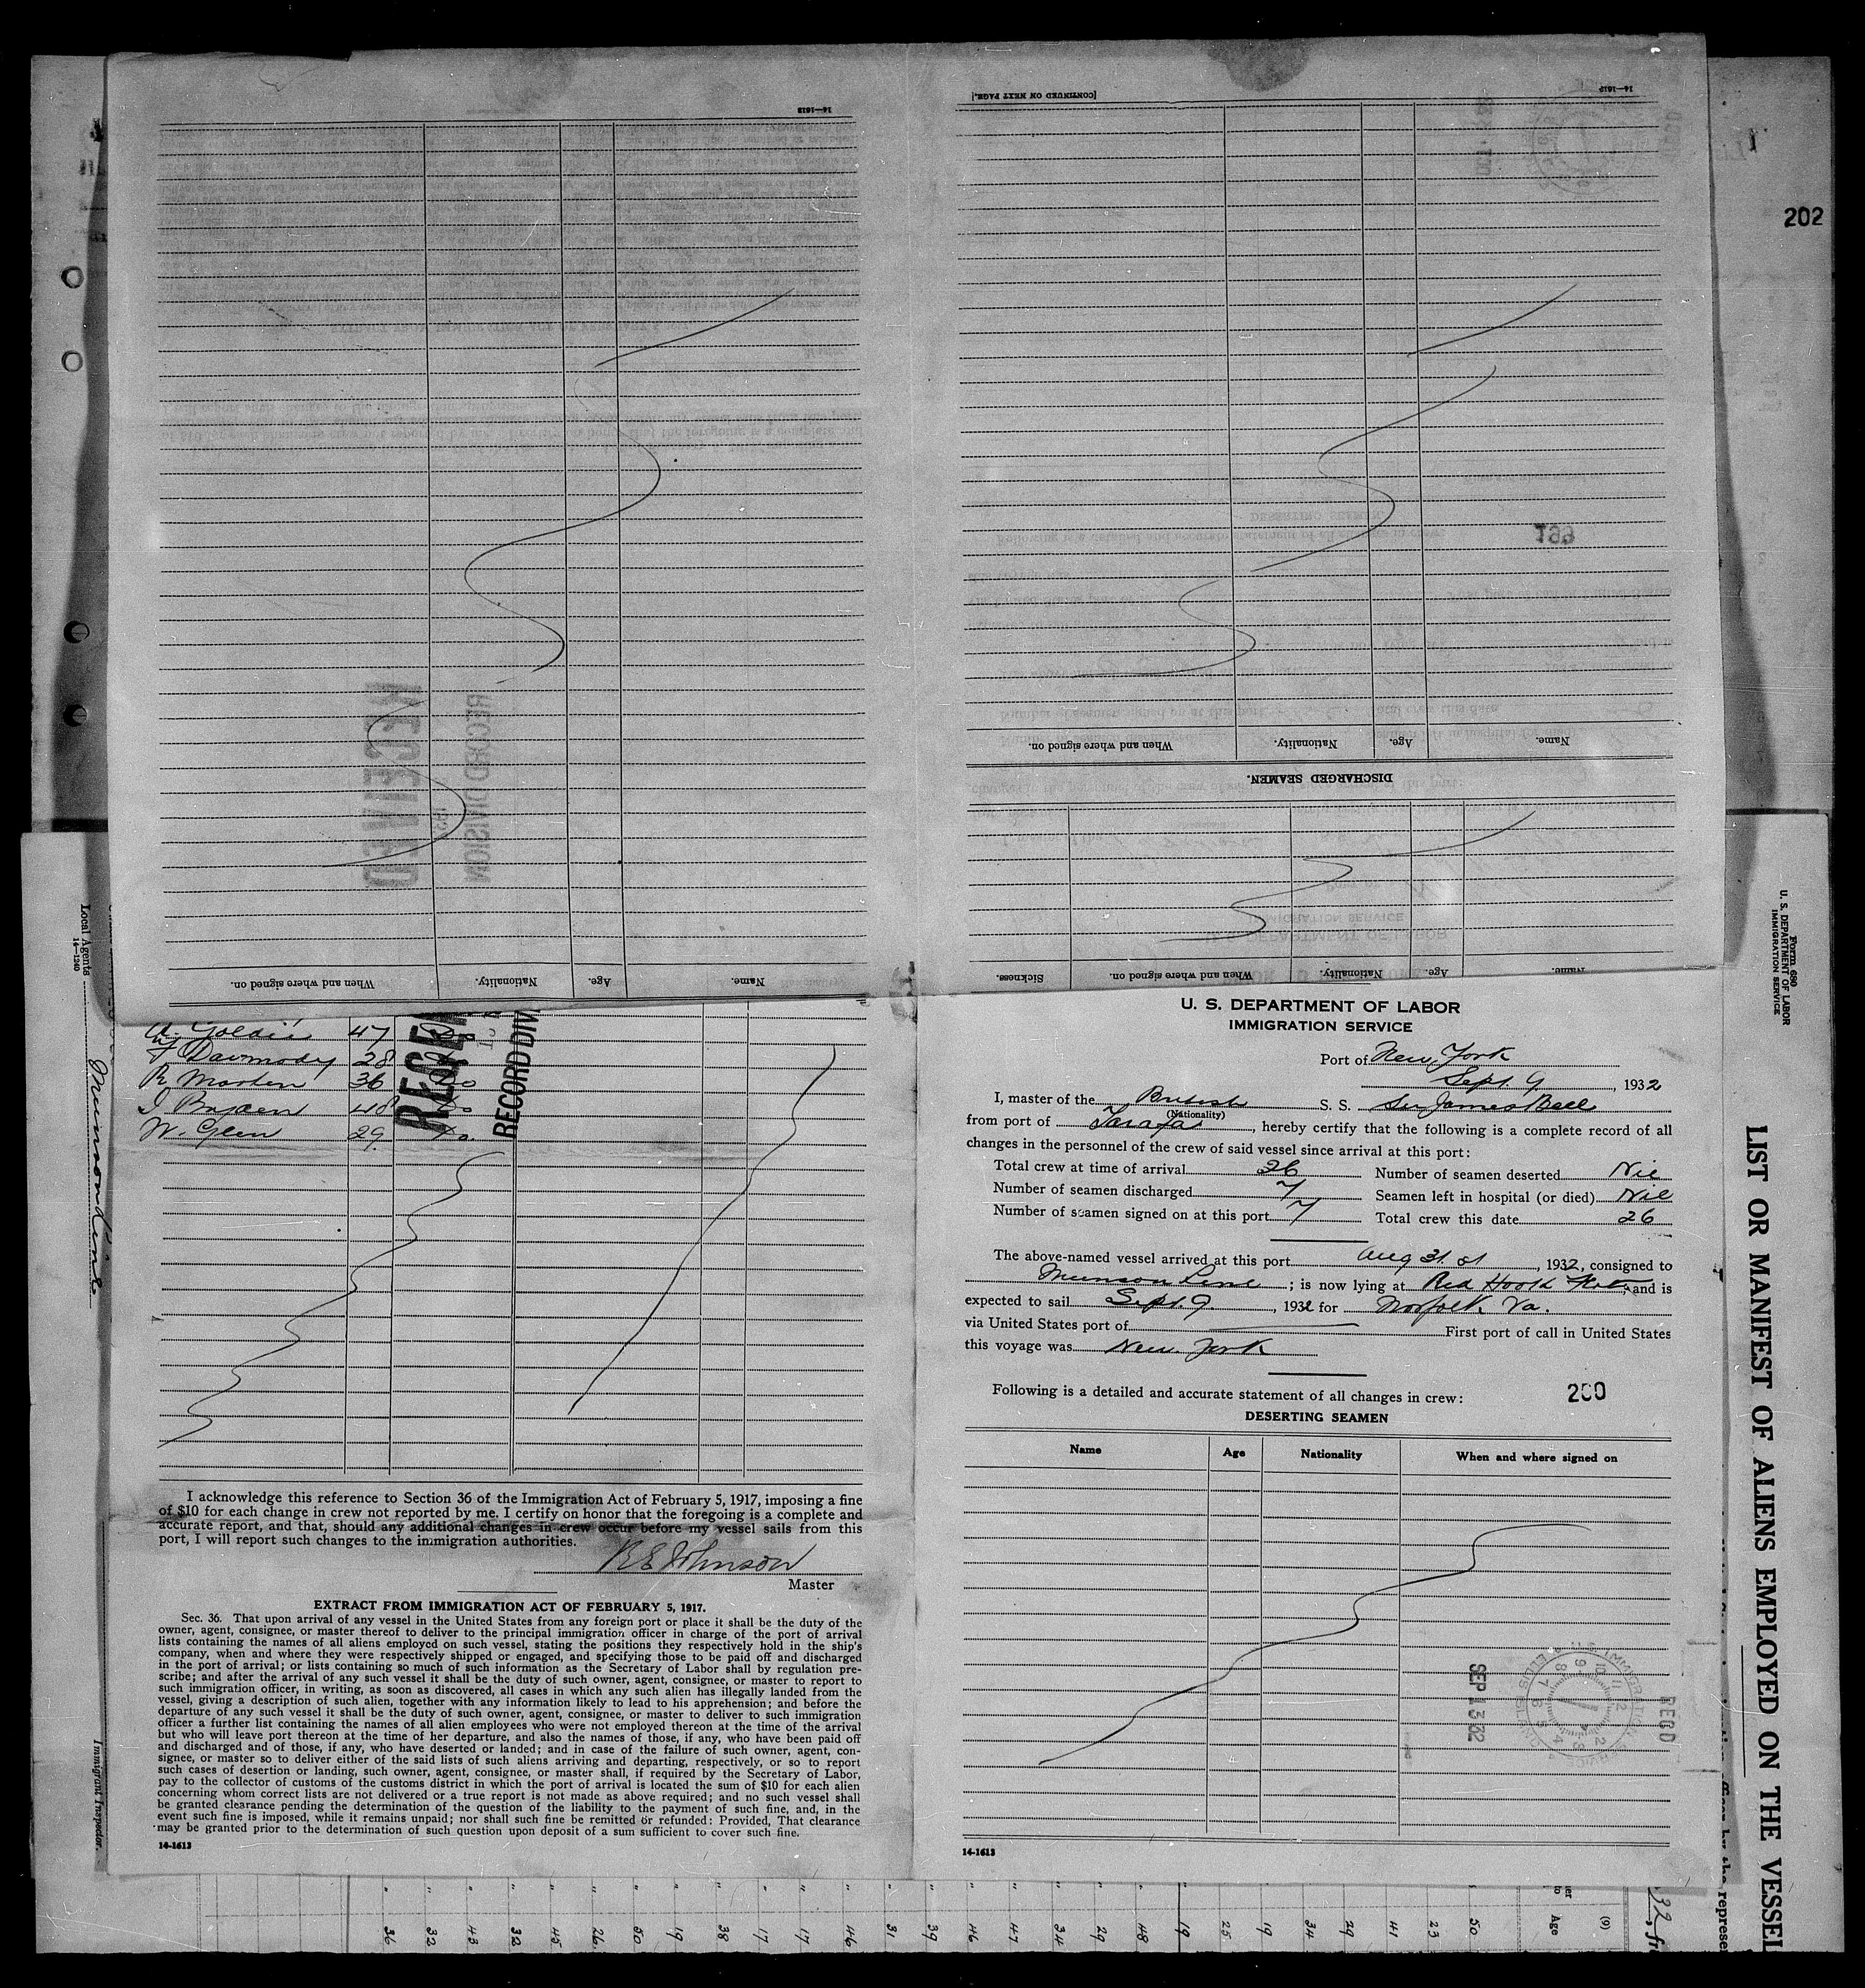 14—1613
[CONTINUED ON NEXT PAGE.]
202
Name.
Age.
Nationality.
When and where signed on.
DISCHARGED SEAMEN.
Name.
Age.
Nationality.
When and where signed on.
Sickness.
Name.
Age.
Nationality.
When and where signed on.
RECEIVED
RECORD DIVISION
Local Agents
14—1240
Munson Line
Immigrant Inspector.
Goldie 47
Darmody 28
R Marten 36 Do
48 Do
W. Glen 29 Do
I acknowledge this reference to Section 36 of the Immigration Act of February 5, 1917, imposing a fine
of $10 for each change in crew not reported by me. I certify on honor that the foregoing is a complete and
accurate report, and that, should any additional changes in crew occur before my vessel sails from this
port, I will report such changes to the immigration authorities.
R E Johnson
Master
EXTRACT FROM IMMIGRATION ACT OF FEBRUARY 5, 1917.
Sec. 36. That upon arrival of any vessel in the United States from any foreign port or place it shall be the duty of the
owner, agent, consignee, or master thereof to deliver to the principal immigration officer in charge of the port of arrival
lists containing the names of all aliens employed on such vessel, stating the positions they respectively hold in the ship's
company, when and where they were respectively shipped or engaged, and specifying those to be paid off and discharged
in the port of arrival; or lists containing so much of such information as the Secretary of Labor shall by regulation pre-
scribe; and after the arrival of any such vessel it shall be the duty of such owner, agent, consignee, or master to report to
such immigration officer, in writing, as soon as discovered, all cases in which any such alien has illegally landed from the
vessel, giving a description of such alien, together with any information likely to lead to his apprehension; and before the
departure of any such vessel it shall be the duty of such owner, agent, consignee, or master to deliver to such immigration
officer a further list containing the names of all alien employees who were not employed thereon at the time of the arrival
but who will leave port thereon at the time of her departure, and also the names of those, if any, who have been paid off
and discharged and of those, if any, who have deserted or landed; and in case of the failure of such owner, agent, con-
signee, or master so to deliver either of the said lists of such aliens arriving and departing, respectively, or so to report
such cases of desertion or landing, such owner, agent, consignee, or master shall, if required by the Secretary of Labor,
pay to the collector of customs of the customs district in which the port of arrival is located the sum of $10 for each alien
concerning whom correct lists are not delivered or a true report is not made as above required; and no such vessel shall
be granted clearance pending the determination of the question of the liability to the payment of such fine, and, in the
event such fine is imposed, while it remains unpaid; nor shall such fine be remitted or refunded: Provided, That clearance
may be granted prior to the determination of such question upon deposit of a sum sufficient to cover such fine.
14-1613
U. S. DEPARTMENT OF LABOR
IMMIGRATION SERVICE
Port of New York
Sept. 9, 1932
I, master of the British S. S. Sir James Bell
(Nationality)
from port of Tarafa, hereby certify that the following is a complete record of all
changes in the personnel of the crew of said vessel since arrival at this port:
Total crew at time of arrival 26 Number of seamen deserted Nil
Number of seamen discharged 7 Seamen left in hospital (or died) Nil
Number of seamen signed on at this port 7 Total crew this date 26
The above-named vessel arrived at this port Aug 31st, 1932, consigned to
Munson Line; is now lying at Red Hook Flats, and is
expected to sail Sept. 9, 1932 for Norfolk Va.
via United States port of First port of call in United States
this voyage was New York
Following is a detailed and accurate statement of all changes in crew: 200
DESERTING SEAMEN
Name Age Nationality When and where signed on
SEP 13 32
RECD
14-1613
Form 680
U. S. DEPARTMENT OF LABOR
IMMIGRATION SERVICE
LIST OR MANIFEST OF ALIENS EMPLOYED ON THE VESSEL
36 32 43 32 45 26 50 19 38 17 17 46 31 39 46 47 34 29 48 19 25 19 34 29 41 23 50
Age
(9)